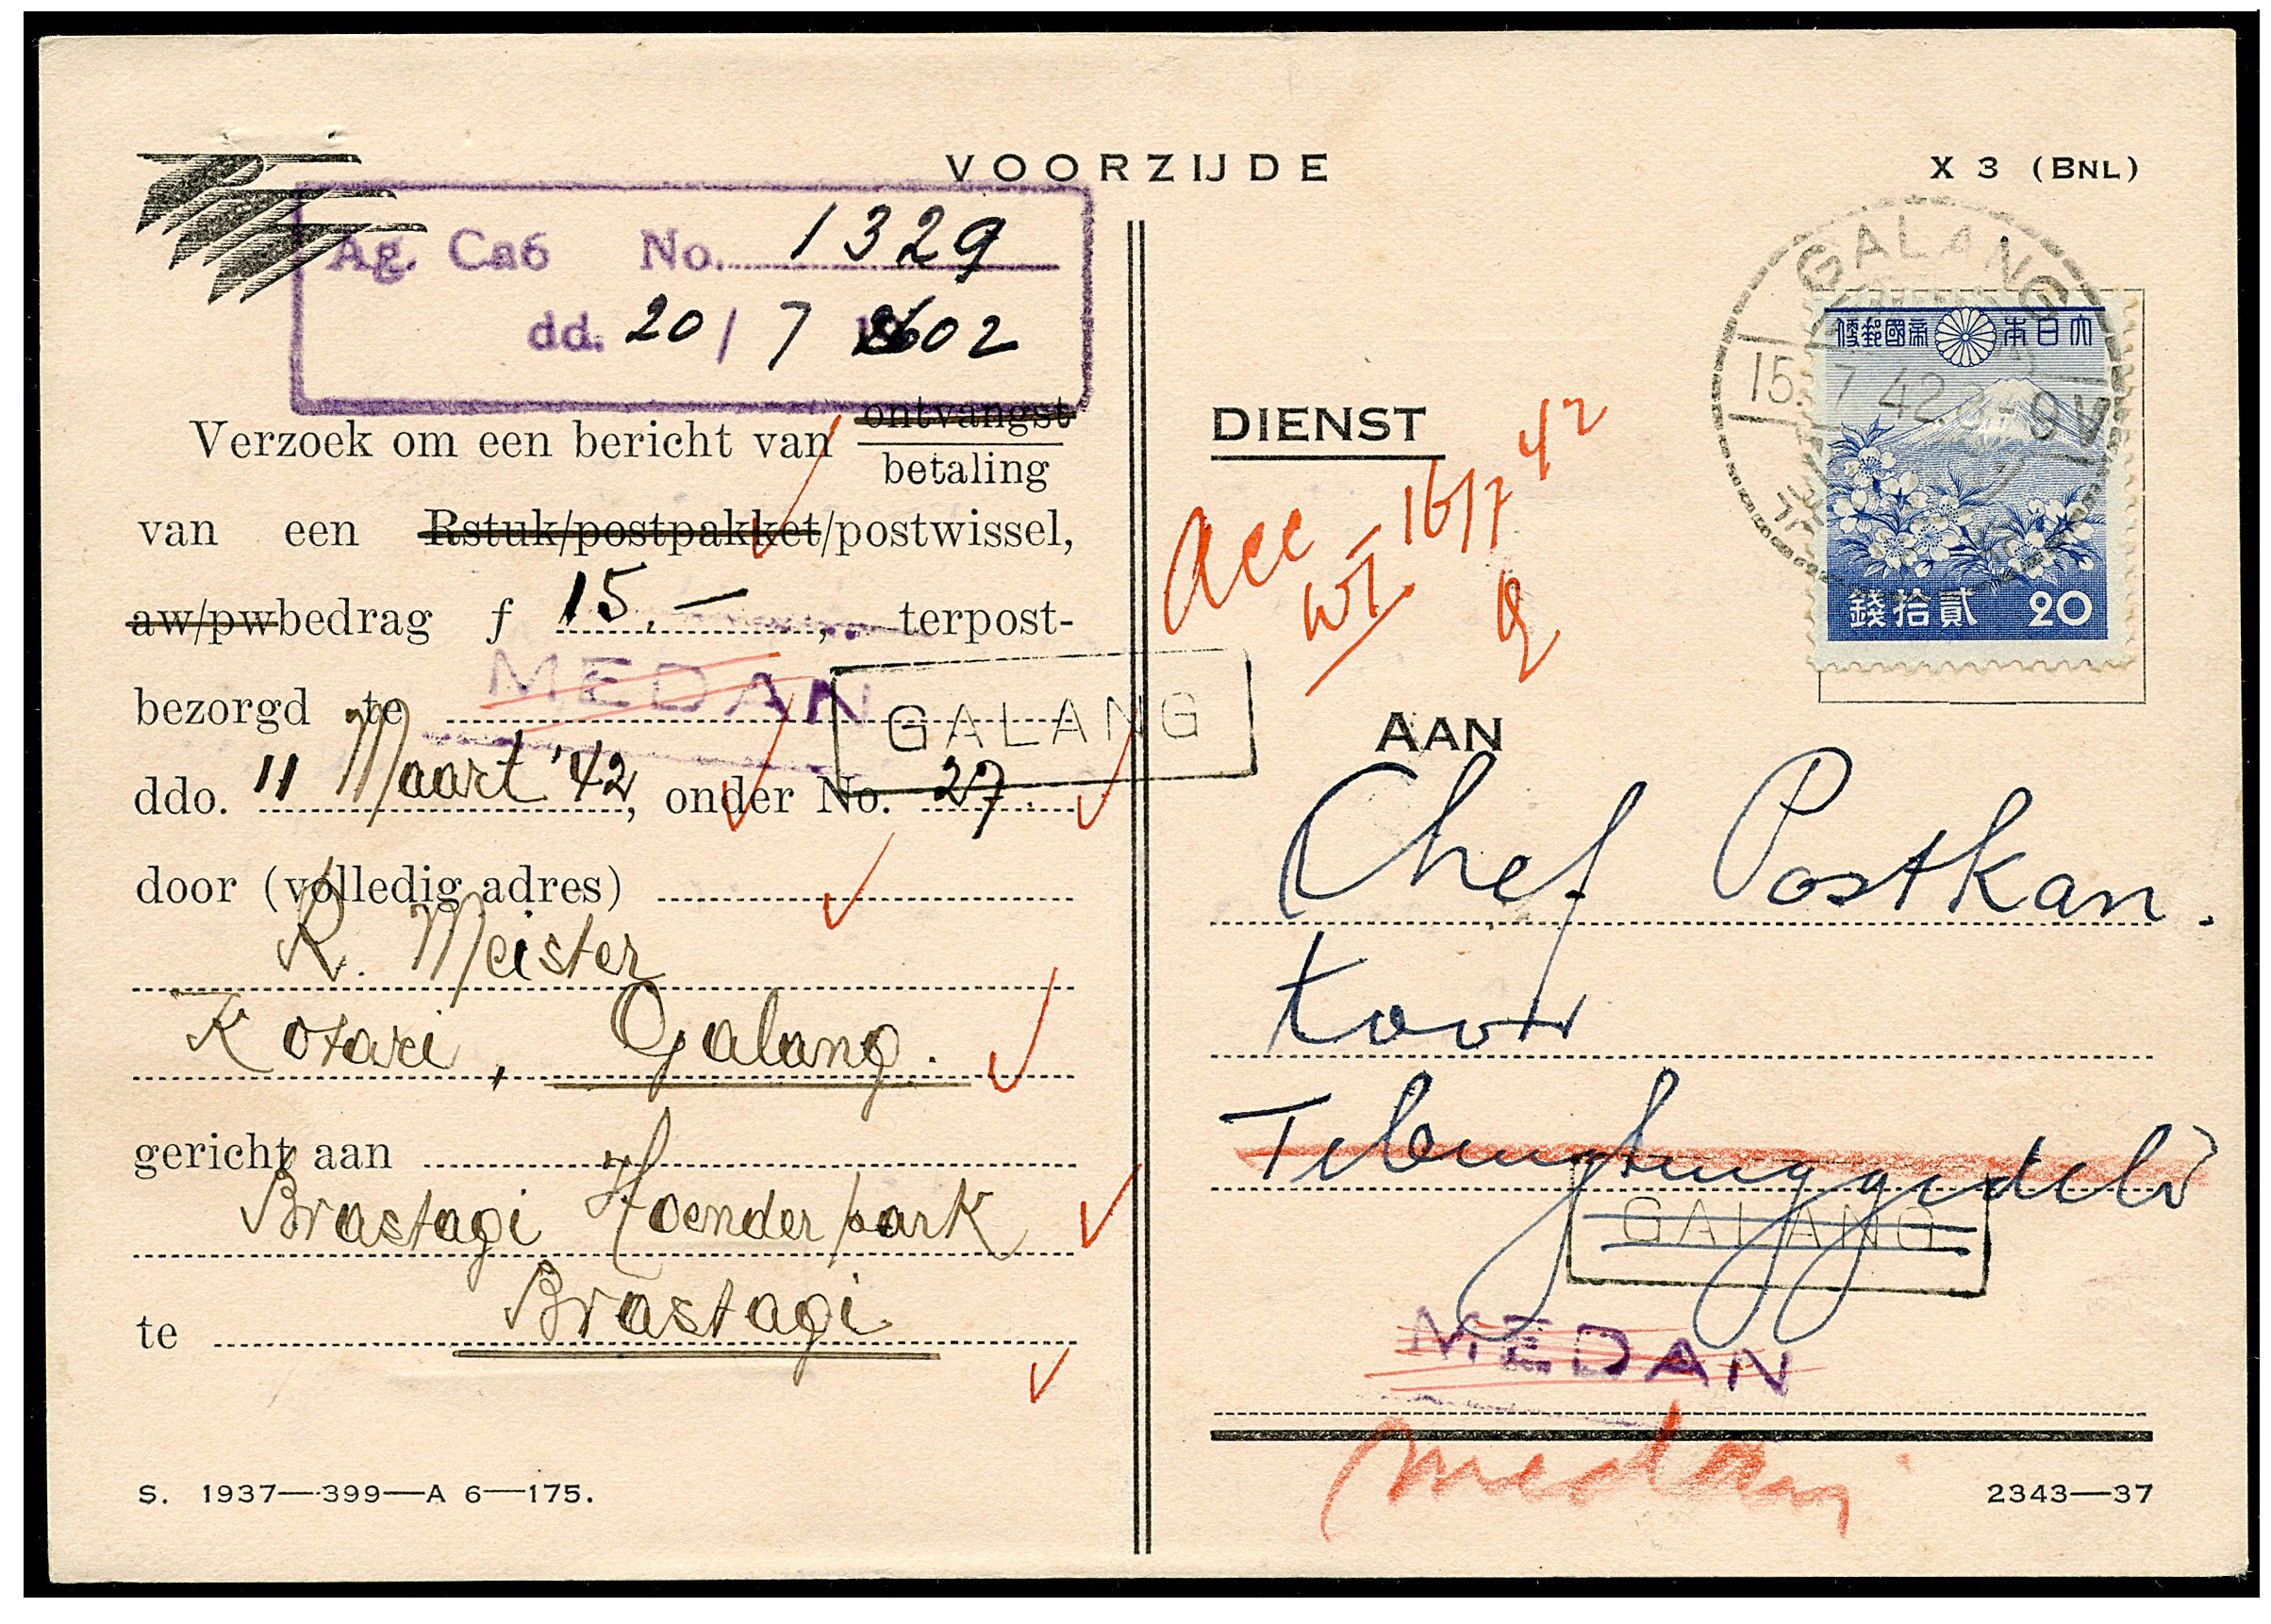 VOORZIJDE
X 3 (BNL)
Ag. Ca6 No. 1329
dd. 20 / 7 2602
Verzoek om een bericht van ontvangst
betaling
van een Rstuk/postpakket/postwissel,
aw/pwbedrag f 15.—, terpost-
MEDAN
bezorgd te
GALANG
ddo. 11 Maart '42, onder No. 27.
door (volledig adres)
R. Meister
Kotari, Galang.
gericht aan
Brastagi Hoenderpark
te Brastagi
S. 1937—399—A 6—175.
GALANG
15. 7 42.8-9V
大日本帝國郵便
貳拾錢 20
DIENST
Acc 16/7 42
AAN
Chef Postkan.
toor
Tebingtinggideli
GALANG
MEDAN
Medan
2343—37